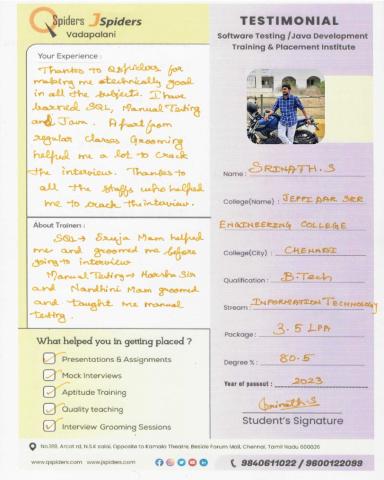 QSpiders JSpiders
Vadapalani
Your Experience :
Thanks to Qspiders for
making me technically good
in all the subjects. I have
learned SQL, Manual Testing
and Java. Apart from
regular classes Grooming
helped me a lot to crack
the interview. Thanks to
all the staffs who helped
me to crack the interview.
About Trainers :
SQL → Sreeja Mam helped
me and groomed me before
going to interview
Manual Testing → Harsha Sir
and Nandhini Mam groomed
and taught me manual
testing.
What helped you in getting placed ?
Presentations & Assignments
Mock Interviews
Aptitude Training
Quality teaching
Interview Grooming Sessions
TESTIMONIAL
Software Testing /Java Development
Training & Placement Institute
Name : SRINATH.S
College(Name) : JEPPIAAR SRR
ENGINEERING COLLEGE
College(City) : CHENNAI
Qualification : B.Tech
Stream : INFORMATION TECHNOLOGY
Package : 3.5 LPA
Degree % : 80.5
Year of passout : 2023
Srinath.S
Student's Signature
No.319, Arcot rd, N.S.K salai, Opposite to Kamala Theatre, Beside Forum Mall, Chennai, Tamil Nadu 600026
www.qspiders.com www.jspiders.com
9840611022 / 9600122099